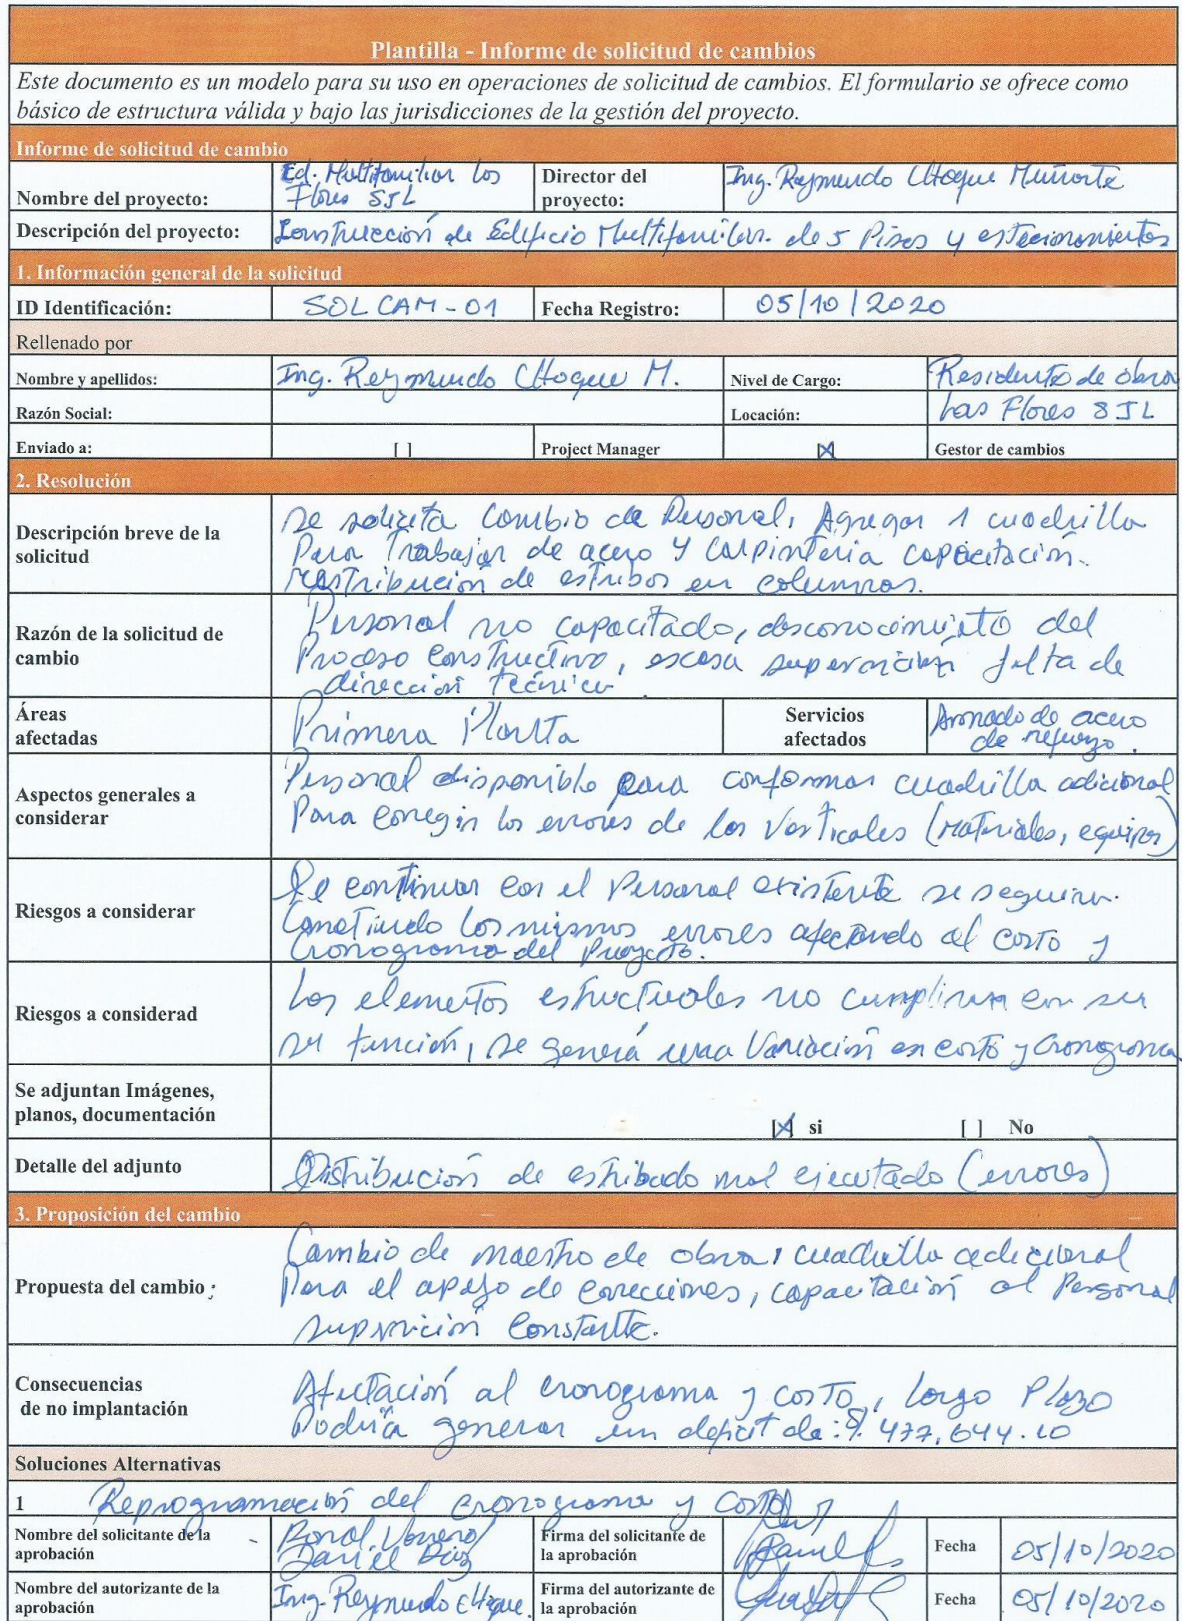 Plantilla - Informe de solicitud de cambios
Este documento es un modelo para su uso en operaciones de solicitud de cambios. El formulario se ofrece como
básico de estructura válida y bajo las jurisdicciones de la gestión del proyecto.
Informe de solicitud de cambio
Nombre del proyecto: Ed. Multifamiliar Los
Flores SJL
Director del
proyecto: Ing. Raymundo Choque
Descripción del proyecto: Construcción de Edificio Multifamiliar. de 5 Pisos y estacionamientos
1. Información general de la solicitud
ID Identificación: SOLCAM-01 Fecha Registro: 05/10/2020
Rellenado por
Nombre y apellidos: Ing. Reymundo Choque M. Nivel de Cargo: Residente de obra
Razón Social: Locación: Las Flores SJL
Enviado a: [ ] Project Manager [X] Gestor de cambios
2. Resolución
Descripción breve de la
solicitud
Se solicita Cambio de Personal, Agregar 1 cuadrilla
Para Trabajar de acero y carpinteria capacitación.
distribución de estribos en columnas.
Razón de la solicitud de
cambio
Personal no capacitado, desconocimiento del
Proceso constructivo, escasa supervición falta de
dirección Técnica.
Áreas
afectadas
Primera Planta
Servicios
afectados
Armado de acero
de refuerzo.
Aspectos generales a
considerar
Personal disponible para conformar cuadrilla adicional
Para corregir los errores de los Verticales (Materiales, equipos)
Riesgos a considerar
De continuar con el Personal existente se seguira.
Cometiendo los mismos errores afectando al costo y
Cronograma del Proyecto.
Riesgos a considerad
Los elementos estructurales no cumpliran con su
su función, se genera una Variación en costo y Cronograma
Se adjuntan Imágenes,
planos, documentación
[X] si [ ] No
Detalle del adjunto
Distribución de estribado mal ejecutado (errores)
3. Proposición del cambio
Propuesta del cambio :
Cambio de maestro de obra, cuadrilla adicional
Para el apoyo de correcciones, capacitación al Personal
supervición Constante.
Consecuencias
de no implantación
Afectación al cronograma y costo, largo Plazo
Podría generar un deficit de: S/. 477,644.10
Soluciones Alternativas
1 Reprogramación del cronograma y Costo
Nombre del solicitante de la
aprobación
Daniel Diaz
Firma del solicitante de
la aprobación
Fecha 05/10/2020
Nombre del autorizante de la
aprobación
Ing. Reymundo Choque.
Firma del autorizante de
la aprobación
Fecha 05/10/2020